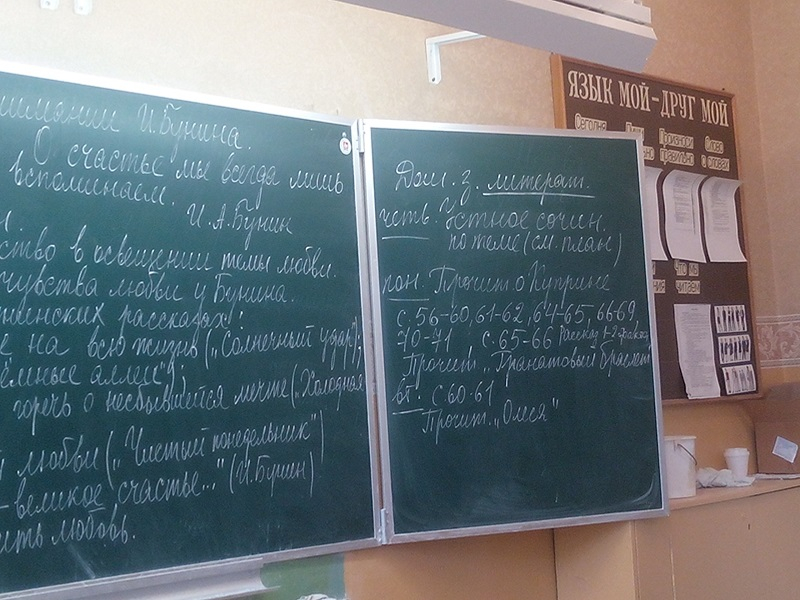 И.Бунина.
О счастье мы всегда лишь
вспоминаем.
И.А.Бунин
ство в освещении темы любви.
чувства любви у Бунина.
рассказах:
на всю жизнь („Солнечный удар");
аллеи");
горечь о несбывшейся мечте („Холодная
любви („Чистый понедельник")
-великое счастье..." (И.Бунин)
ить любовь.
Дом. з. литерат.
четв. Устное сочин.
по теме (см. план)
пон. Прочит. о Куприне
с.56-60, 61-62, 64-65, 66-69,
70-71 с.65-66 Рассказ
Прочит. „Гранатовый браслет
вт. с.60-61
Прочит. „Олеся"
ЯЗЫК МОЙ-ДРУГ МОЙ
Сегодня
Произноси
правильно
Слово
о словах
Что мы
читаем